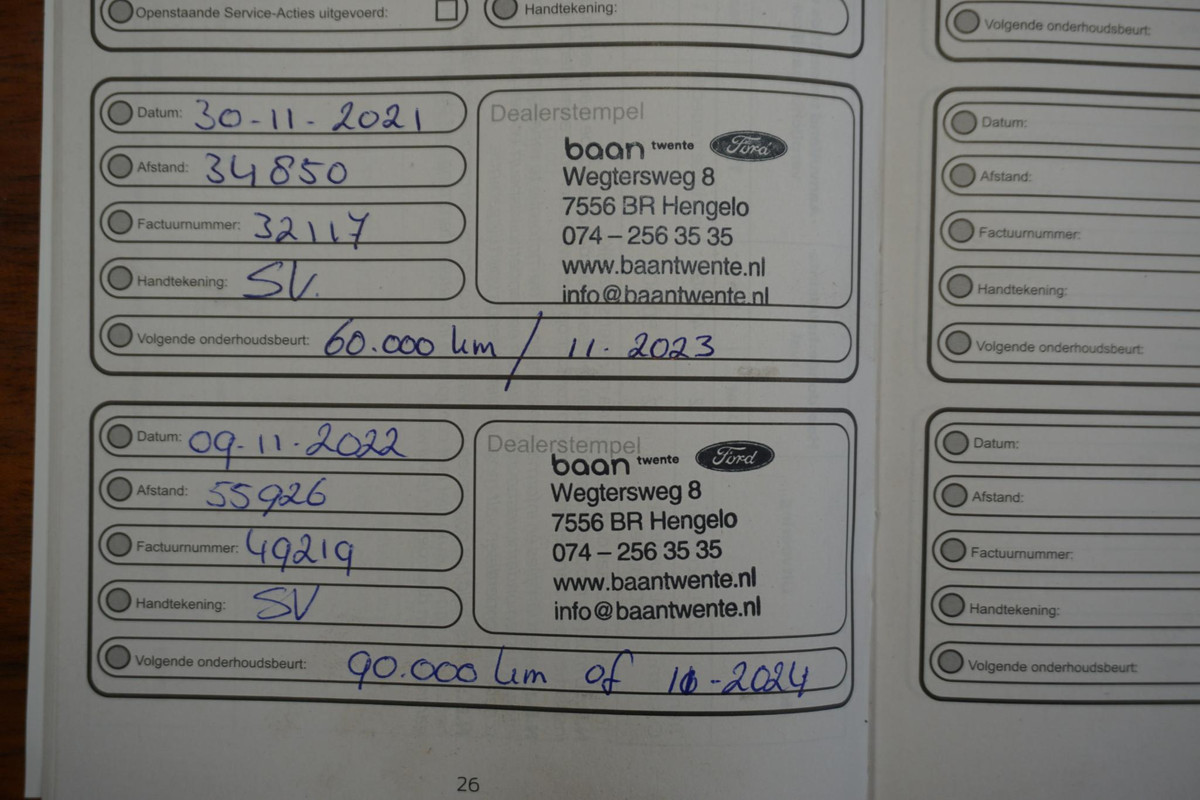 Openstaande Service-Acties uitgevoerd:
Handtekening:
Datum: 30-11-2021
Afstand: 34850
Factuurnummer: 32117
Handtekening: SV.
Dealerstempel
baan twente Ford
Wegtersweg 8
7556 BR Hengelo
074 – 256 35 35
www.baantwente.nl
info@baantwente.nl
Volgende onderhoudsbeurt: 60.000 km / 11-2023
Datum: 09-11-2022
Afstand: 55926
Factuurnummer: 49219
Handtekening: SV
Dealerstempel
baan twente Ford
Wegtersweg 8
7556 BR Hengelo
074 – 256 35 35
www.baantwente.nl
info@baantwente.nl
Volgende onderhoudsbeurt: 90.000 km of -2024
26
Volgende onderhoudsbeurt:
Datum:
Afstand:
Factuurnummer:
Handtekening:
Volgende onderhoudsbeurt:
Datum:
Afstand:
Factuurnummer:
Handtekening:
Volgende onderhoudsbeurt: